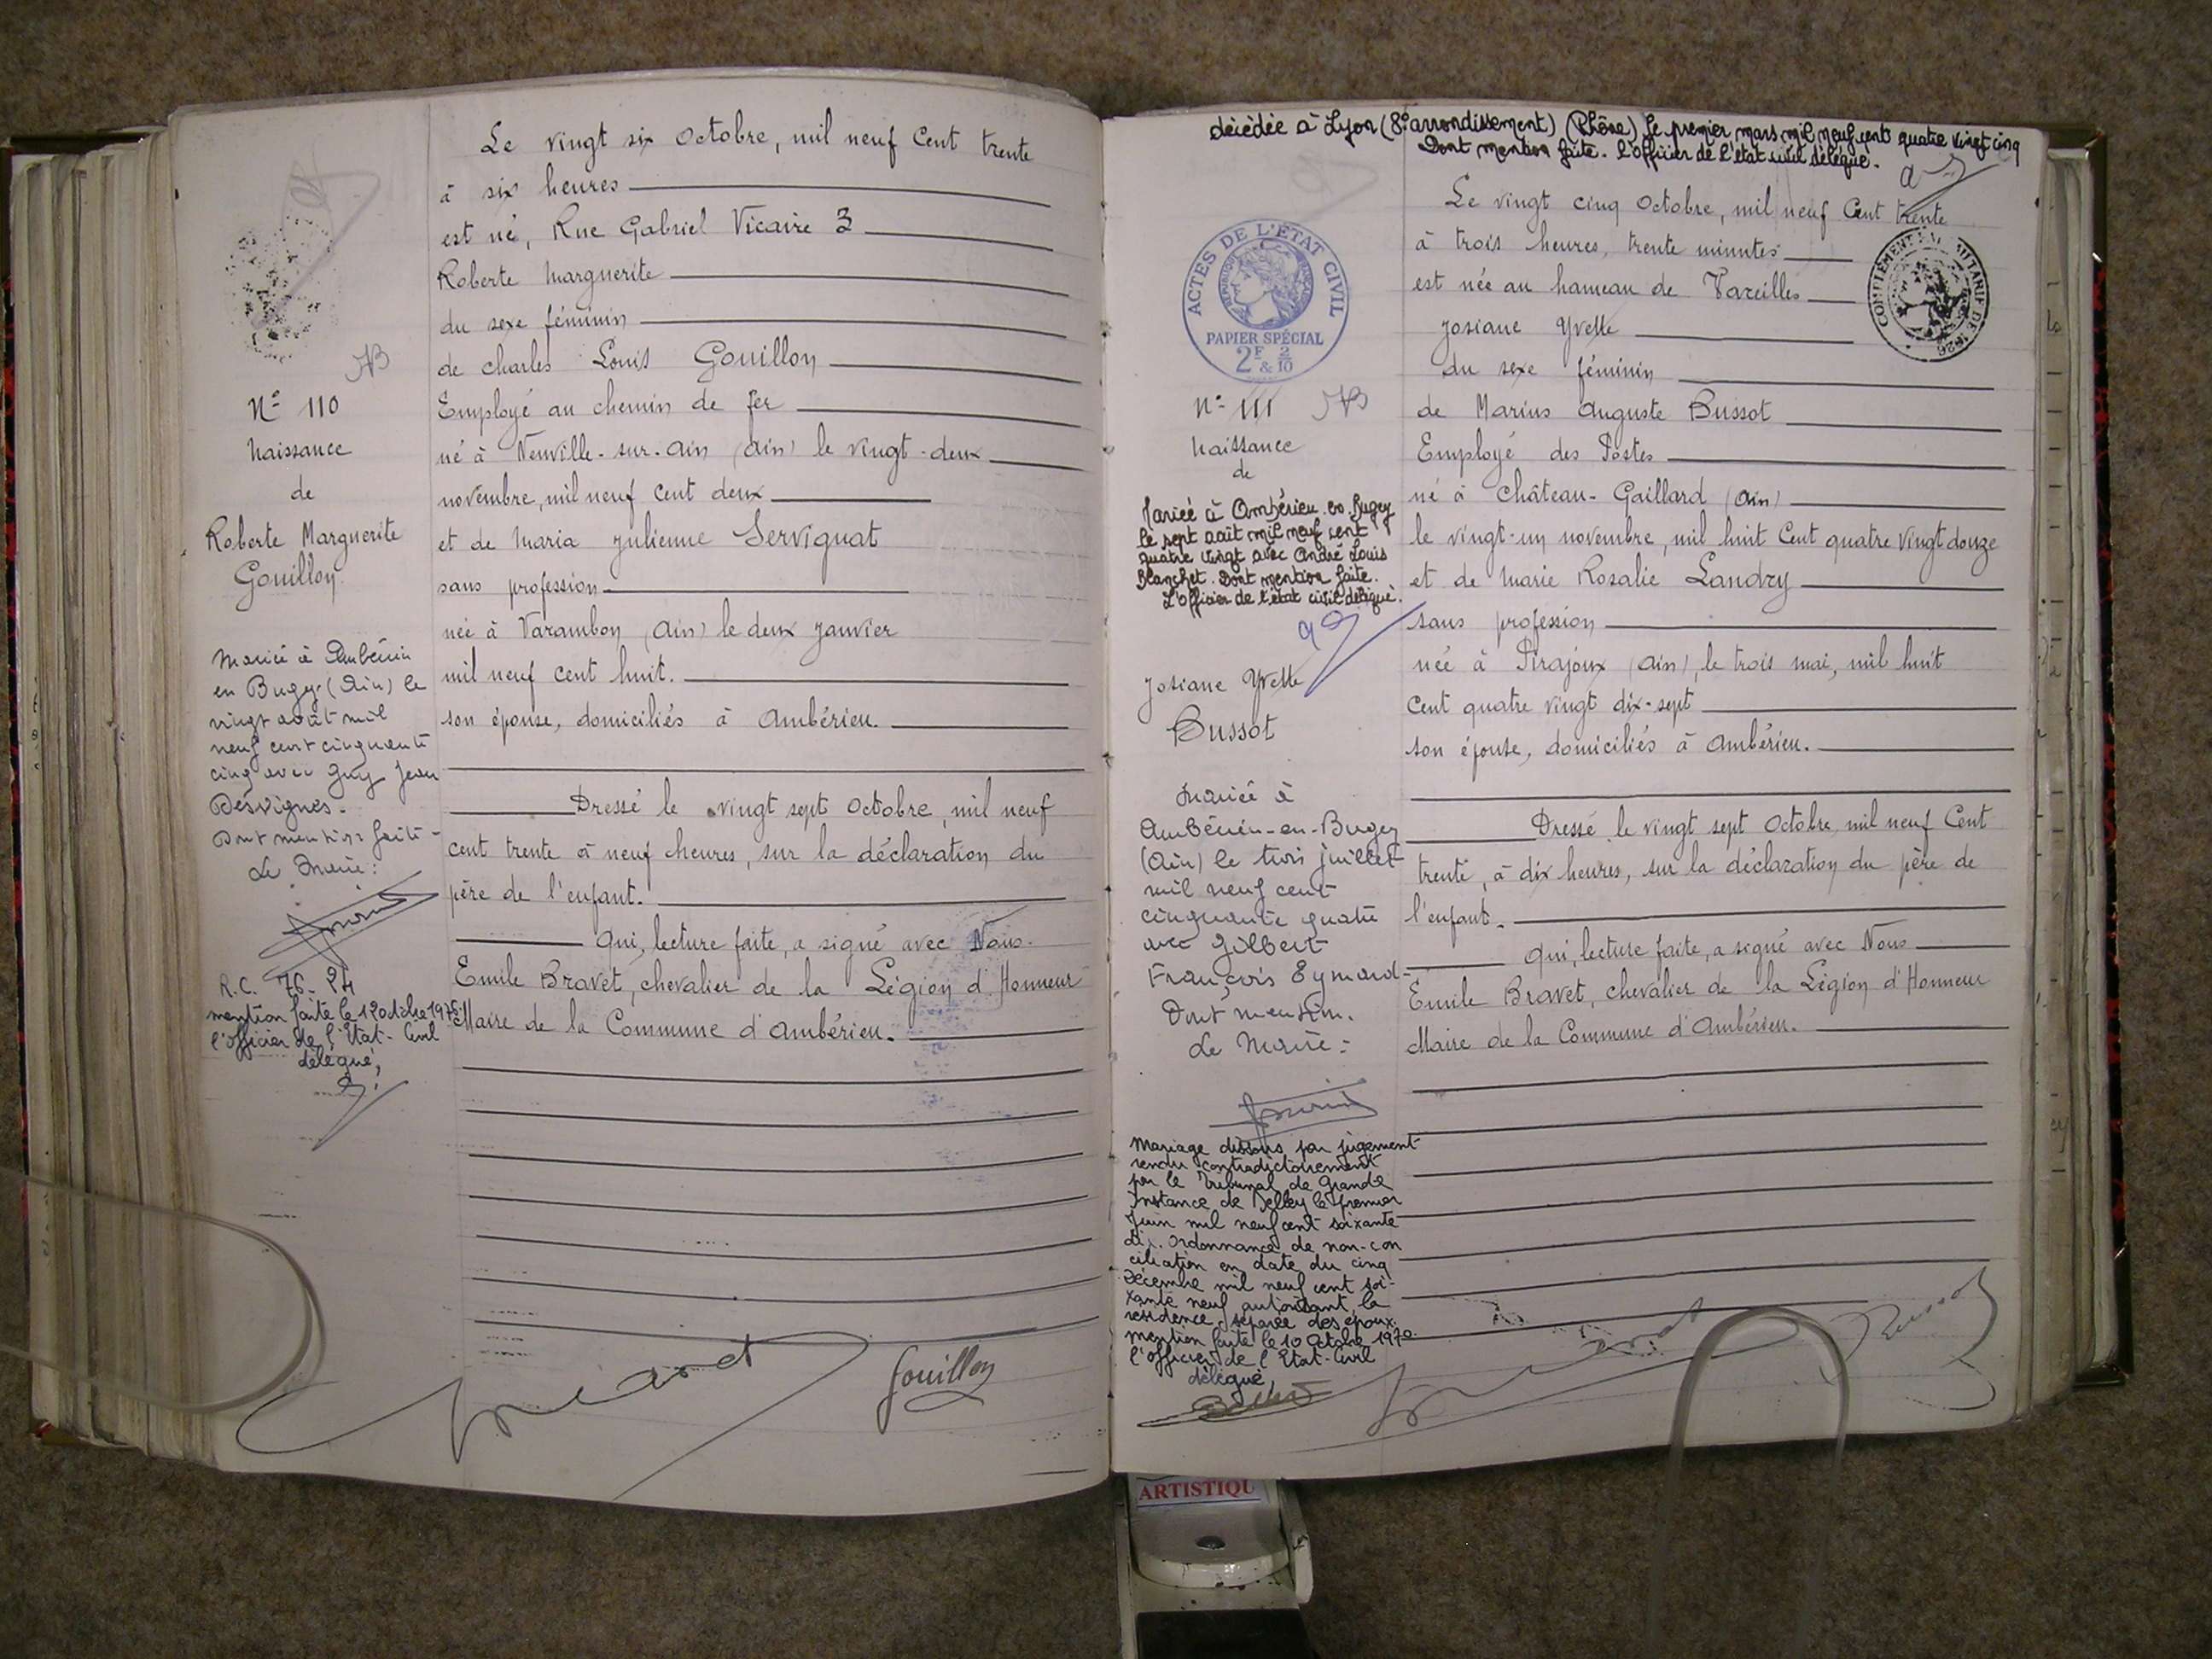 Le vingt six octobre, mil neuf Cent trente
à six heures
est né, Rue Gabriel Vicaire 3
Roberte Marguerite
du sexe féminin
de Charles Louis Gouillon
Employé au chemin de fer
né à Neuville-sur-Ain (Ain) le vingt-deux
novembre, mil neuf cent deux
et de Maria Julienne Servignat
sans profession
née à Varambon (Ain) le deux Janvier
mil neuf cent huit.
son épouse, domiciliés à Ambérieu.
Dressé le vingt sept Octobre, mil neuf
cent trente à neuf heures, sur la déclaration du
père de l'enfant.
Qui, lecture faite, a signé avec Nous
Emile Bravet, chevalier de la Légion d'Honneur
Maire de la Commune d'Ambérieu.
N° 110
Naissance
de
Roberte Marguerite
Gouillon
Mariée à Ambérieu
en Bugey (Ain) le
vingt août mil
neuf cent cinquante
cinq avec Guy Jean
Desvignes.
Dont mention faite -
Le Maire:
R.C. 76-24
mention faite le 12 octobre 1976
l'officier de l'Etat-Civil
délégué,
Gouillon
décédée à Lyon (8e arrondissement) (Rhône) le premier mars mil neuf cent quatre vingt cinq
Dont mention faite. L'officier de l'état civil délégué.
Le vingt cinq Octobre, mil neuf Cent trente
à trois heures, trente minutes
est née au hameau de Vareilles
Josiane Yvette
du sexe féminin
de Marius Auguste Bussot
Employé des Postes
né à Château-Gaillard (Ain)
le vingt-un novembre, mil huit Cent quatre vingt douze
et de Marie Rosalie Landry
sans profession
née à Pirajoux (Ain), le trois mai, mil huit
Cent quatre vingt dix-sept
son épouse, domiciliés à Ambérieu.
Dressé le vingt sept Octobre, mil neuf Cent
trente, à dix heures, sur la déclaration du père de
l'enfant.
Qui, lecture faite, a signé avec Nous
Emile Bravet, chevalier de la Légion d'Honneur
Maire de la Commune d'Ambérieu.
ACTES DE L'ETAT CIVIL
REPUBLIQUE FRANÇAISE
PAPIER SPÉCIAL
2F & 2/10
COMPLÉMENT AU TARIF DE 1926
N° 111
Naissance
de
Mariée à Ambérieu en Bugey
le sept août mil neuf cent
quatre vingt avec André Louis
Blanchet. Dont mention faite.
L'Officier de l'état civil délégué.
Josiane Yvette
Bussot
Mariée à
Ambérieu-en-Bugey
(Ain) le trois juillet
mil neuf cent
cinquante quatre
avec Gilbert
François Eymard -
Dont mention.
Le Maire:
Mariage dissous par jugement
rendu contradictoirement
par le Tribunal de Grande
Instance de Belley le premier
Juin mil neuf cent soixante
dix. Ordonnance de non-con
ciliation en date du cinq
Décembre mil neuf cent soi-
xante neuf autorisant la
résidence séparée des époux.
mention faite le 10 Octobre 1970.
l'officier de l'Etat-Civil
délégué,
Bussot
ARTISTIQU